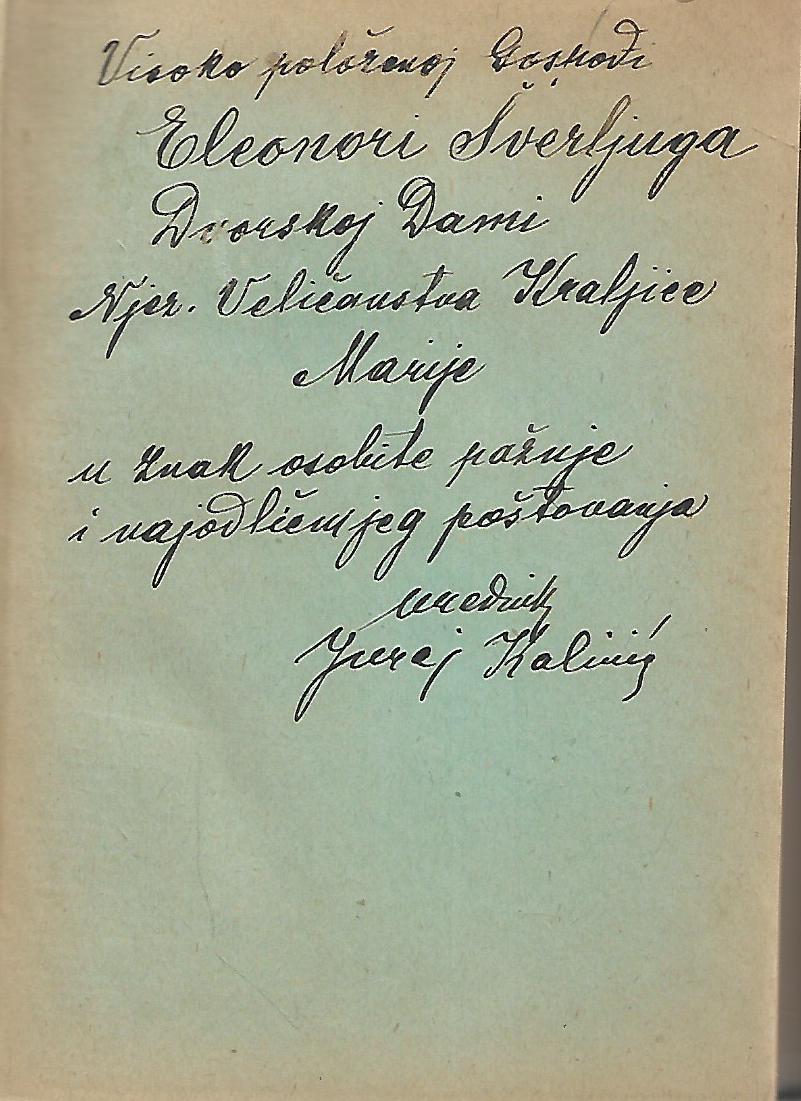 Visoko položenoj Gospođi
Eleonori Šverljuga
Dvorskoj Dami
Njez. Veličanstva Kraljice
Marije
u znak osobite pažnje
i najodličnijeg poštovanja
urednik
Juraj Kalinić